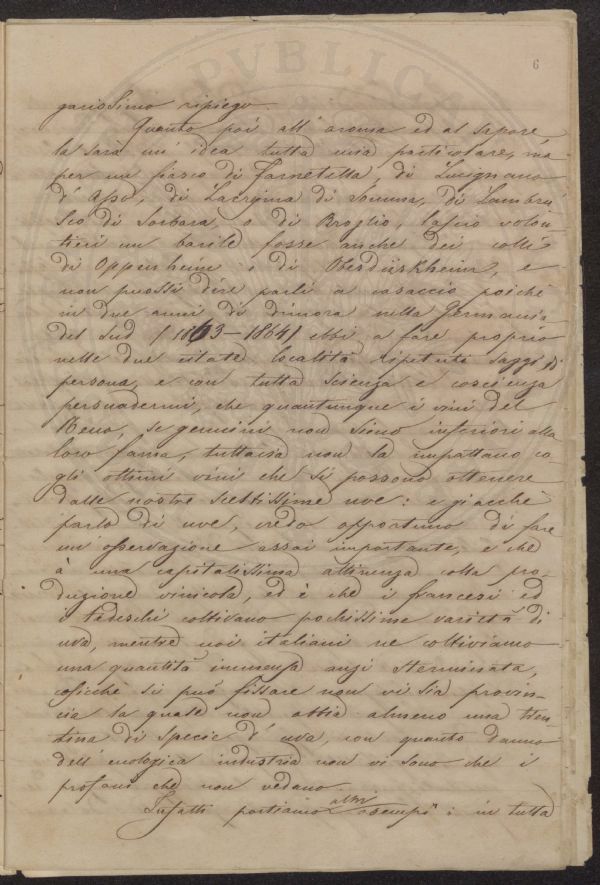 6
PVBLICA
gariosissimo ripiego.
Quanto poi all' aroma ed al sapore
la sarà un' idea tutta mia particolare, ma
per un fiasco di Farnetella, di Lucignano
d' Asso, di Lacryma di Somma, di Lambru
sco di Sorbara, o di Broglio, lascio volon
tieri un barile fosse anche dei colli
di Oppenheim o di Oberdürkheim, e
non puossi dire parli a casaccio poichè
in due anni di dimora nella Germania
del Sud (1863-1864) ebbi a fare proprio
nelle due citate località ripetuti saggi di
persona, e con tutta scienza e coscienza
persuadermi, che quantunque i vini del
Reno, se genuini non siano inferiori alla
loro fama, tuttavia non la impattano co
gli ottimi vini che si possono ottenere
dalle nostre sceltissime uve: e giacchè
parlo di uve, credo opportuno di fare
un' osservazione assai importante, e che
à una capitalissima attinenza colla pro-
duzione vinicola, ed è che i francesi ed
i tedeschi coltivano pochissime varietà di
uva, mentre noi italiani ne coltiviamo
una quantità immensa anzi sterminata,
cosicchè si può fissare non vi sia provin-
cia la quale non abbia almeno una tren
tina di specie d' uva, con quanto danno
dell' enologica industria non vi sono che i
profani che non vedano.
Infatti portiamo altri esempi: in tutta